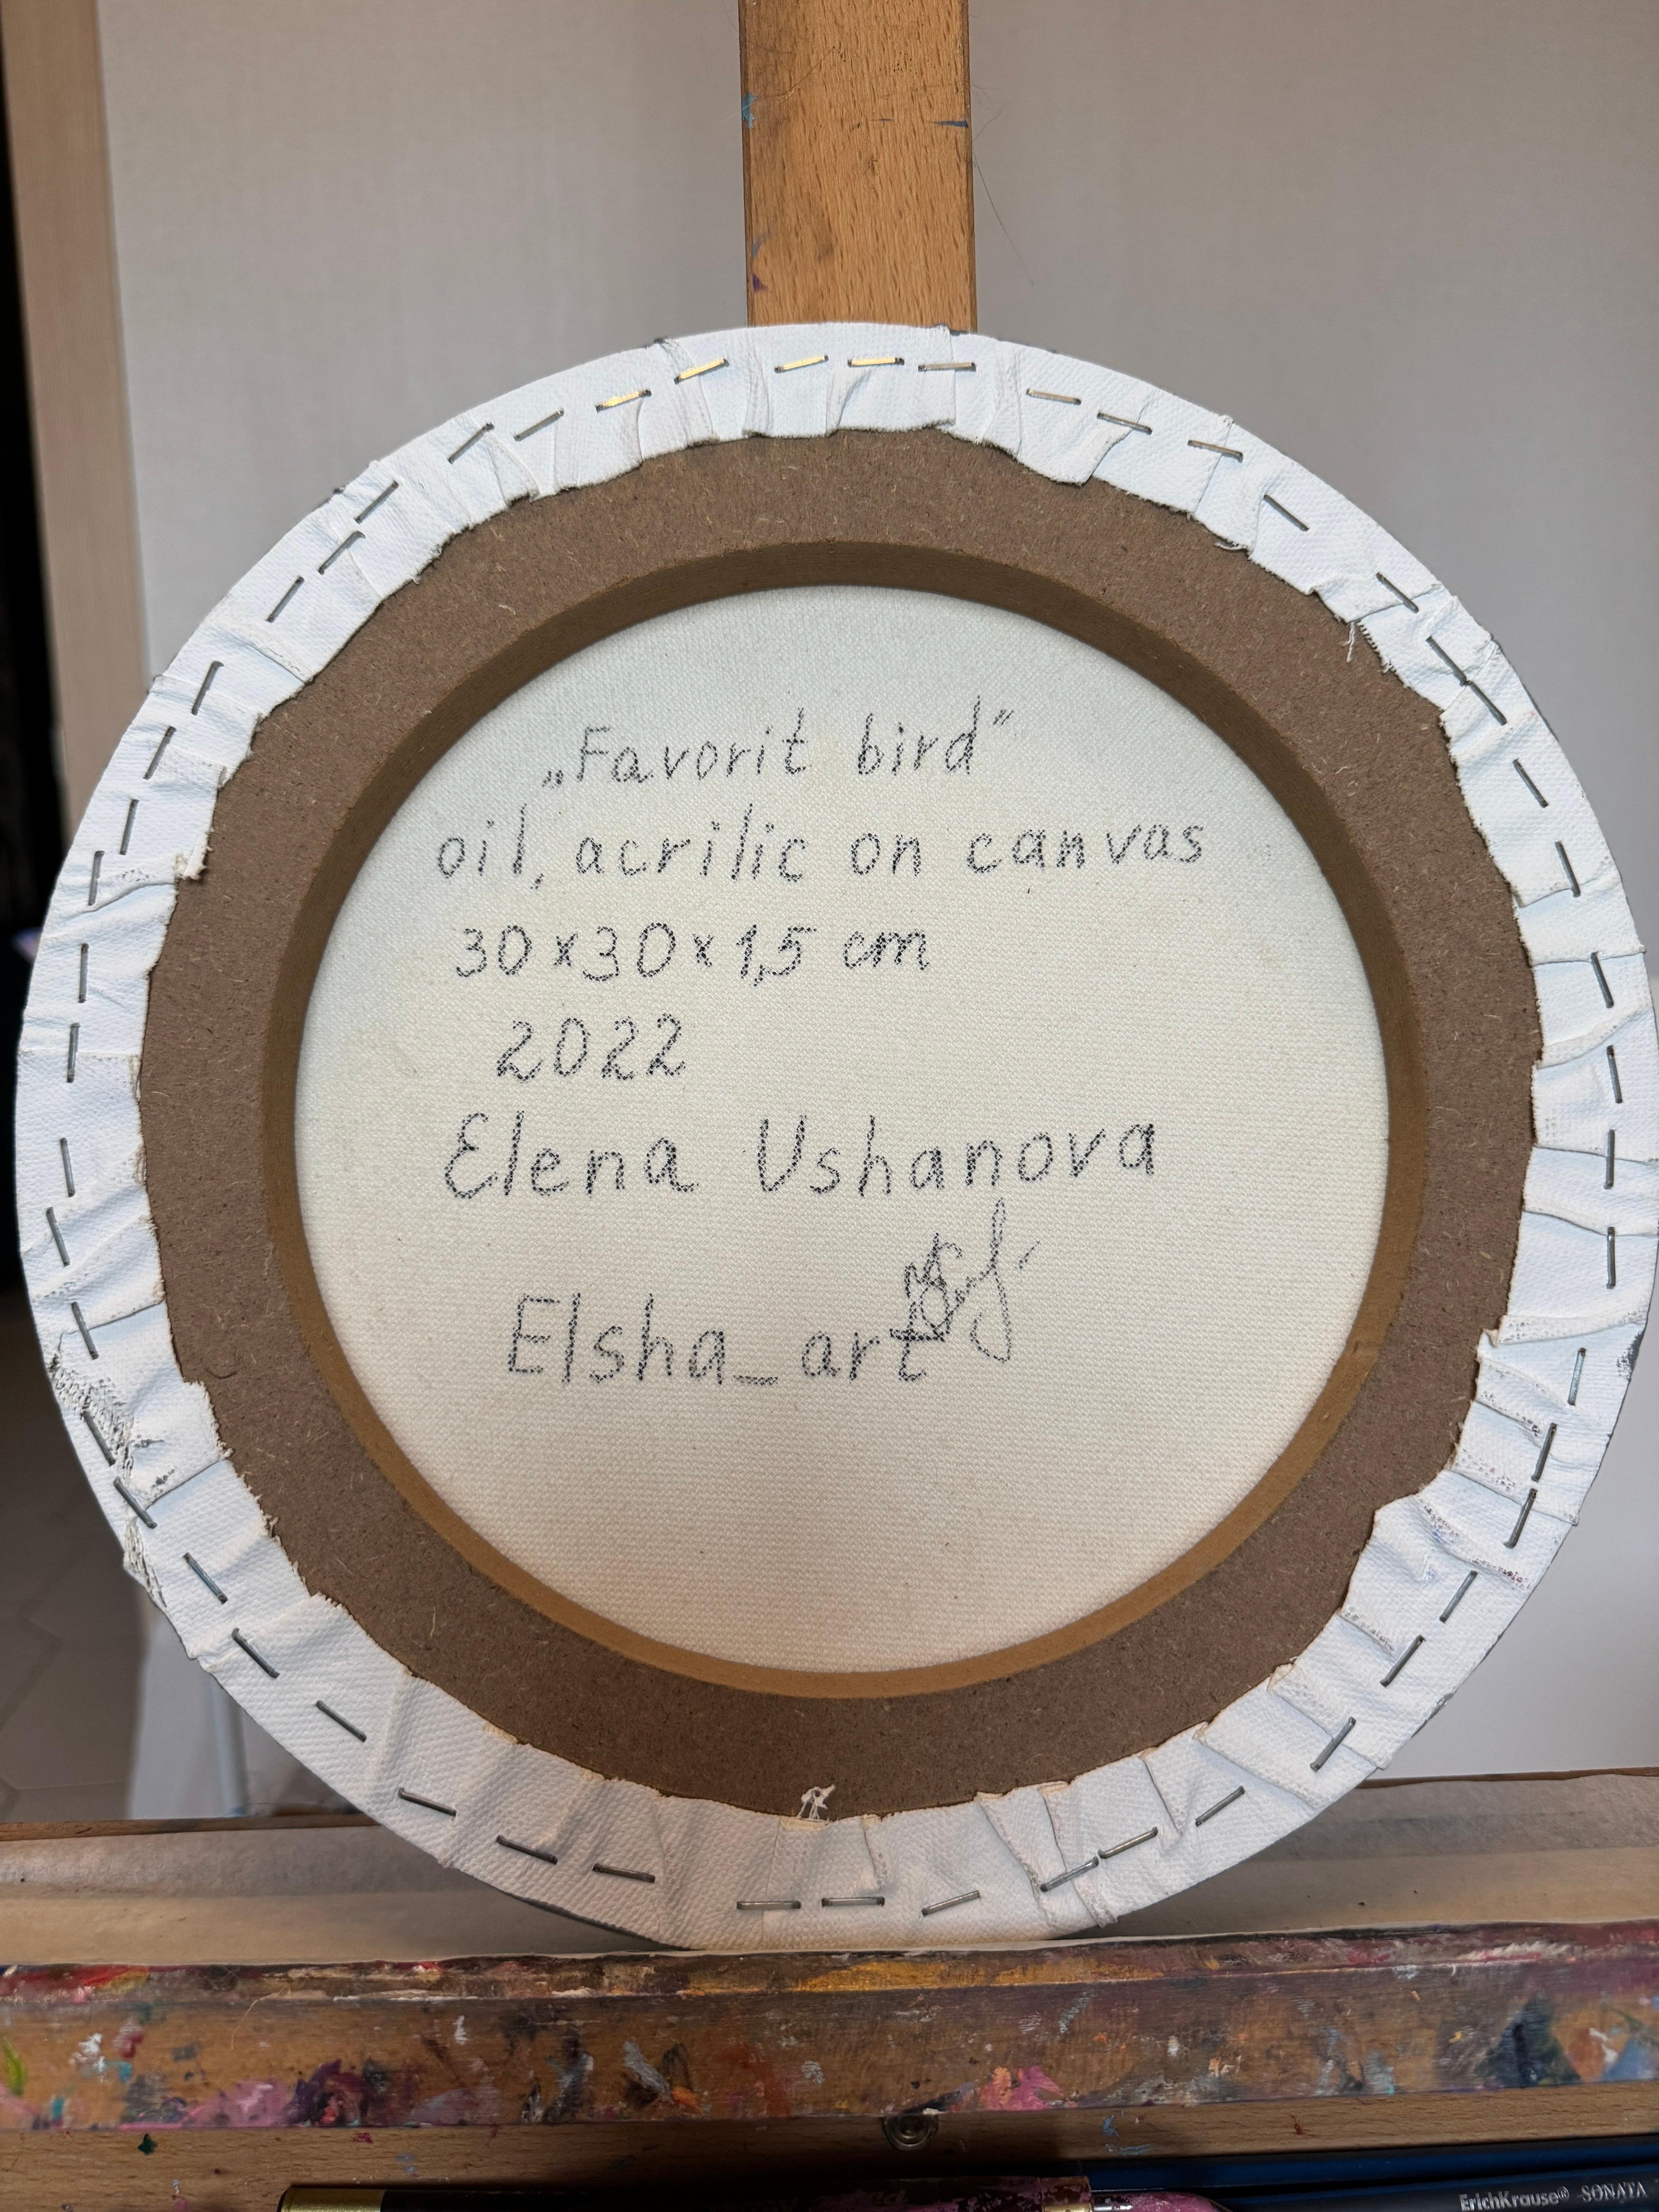 „Favorit bird”
oil, acrilic on canvas
30×30×1,5 cm
2022
Elena Ushanova
Elsha_art
ErichKrause® SONATA